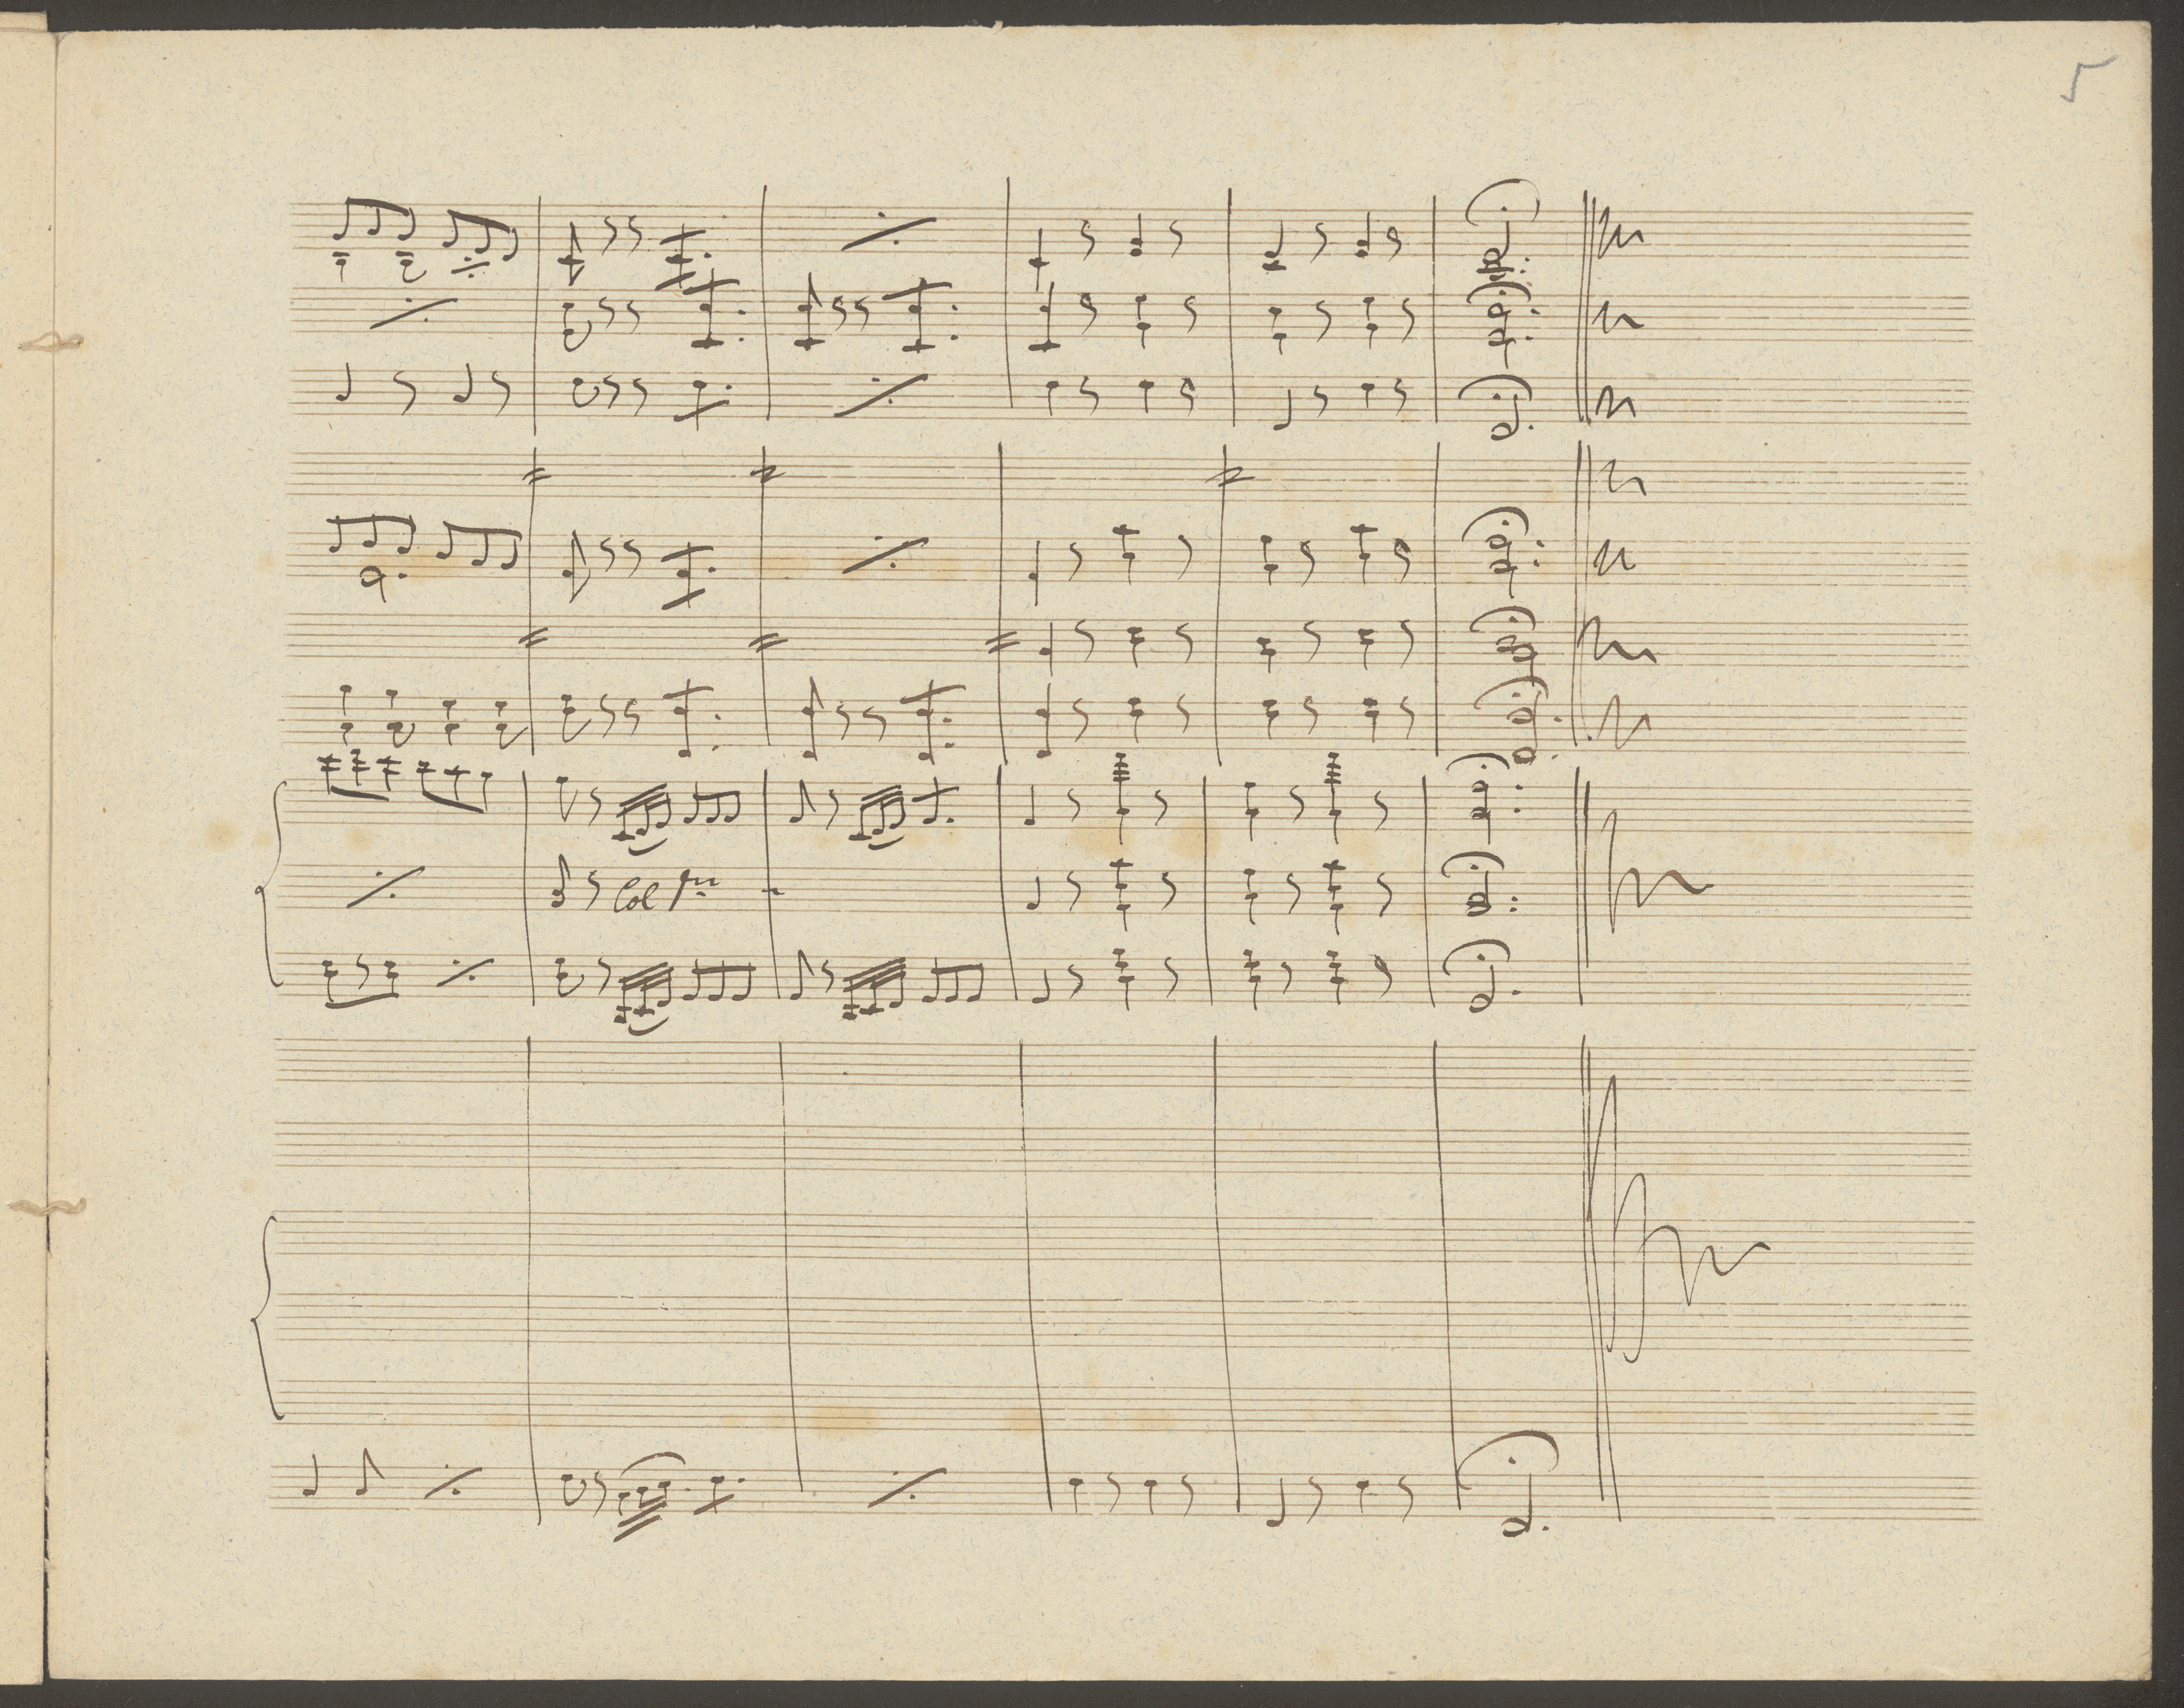 5
Col 1mo